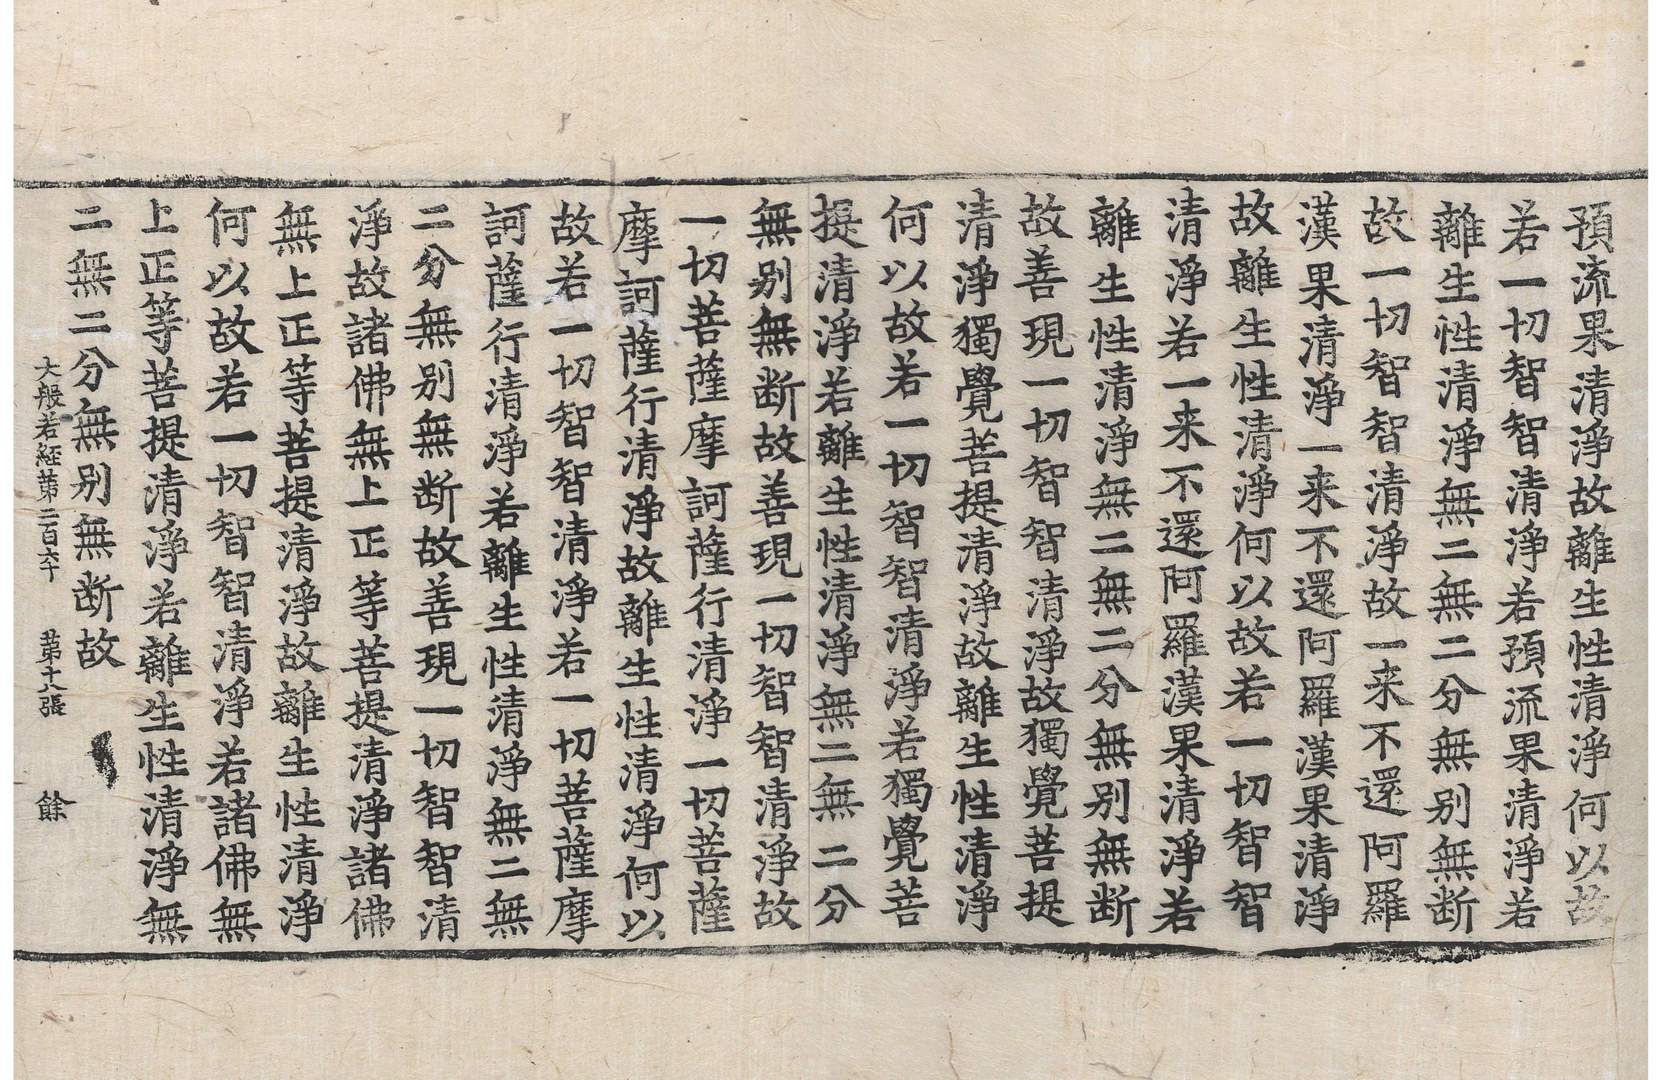 預流果清淨故離生性清淨何以故
若一切智智清淨若預流果清淨若
離生性清淨無二無二分無别無断
故一切智智清淨故一来不還阿羅
漢果清淨一来不還阿羅漢果清淨
故離生性清淨何以故若一切智智
清淨若一来不還阿羅漢果清淨若
離生性清淨無二無二分無别無断
故善現一切智智清淨故獨覺菩提
清淨獨覺菩提清淨故離生性清淨
何以故若一切智智清淨若獨覺菩
提清淨若離生性清淨無二無二分
無别無断故善現一切智智清淨故
一切菩薩摩訶薩行清淨一切菩薩
摩訶薩行清淨故離生性清淨何以
故若一切智智清淨若一切菩薩摩
訶薩行清淨若離生性清淨無二無
二分無别無断故善現一切智智清
淨故諸佛無上正等菩提清淨諸佛
無上正等菩提清淨故離生性清淨
何以故若一切智智清淨若諸佛無
上正等菩提清淨若離生性清淨無
二無二分無别無断故
大般若経第二百六十 第十八張 餘